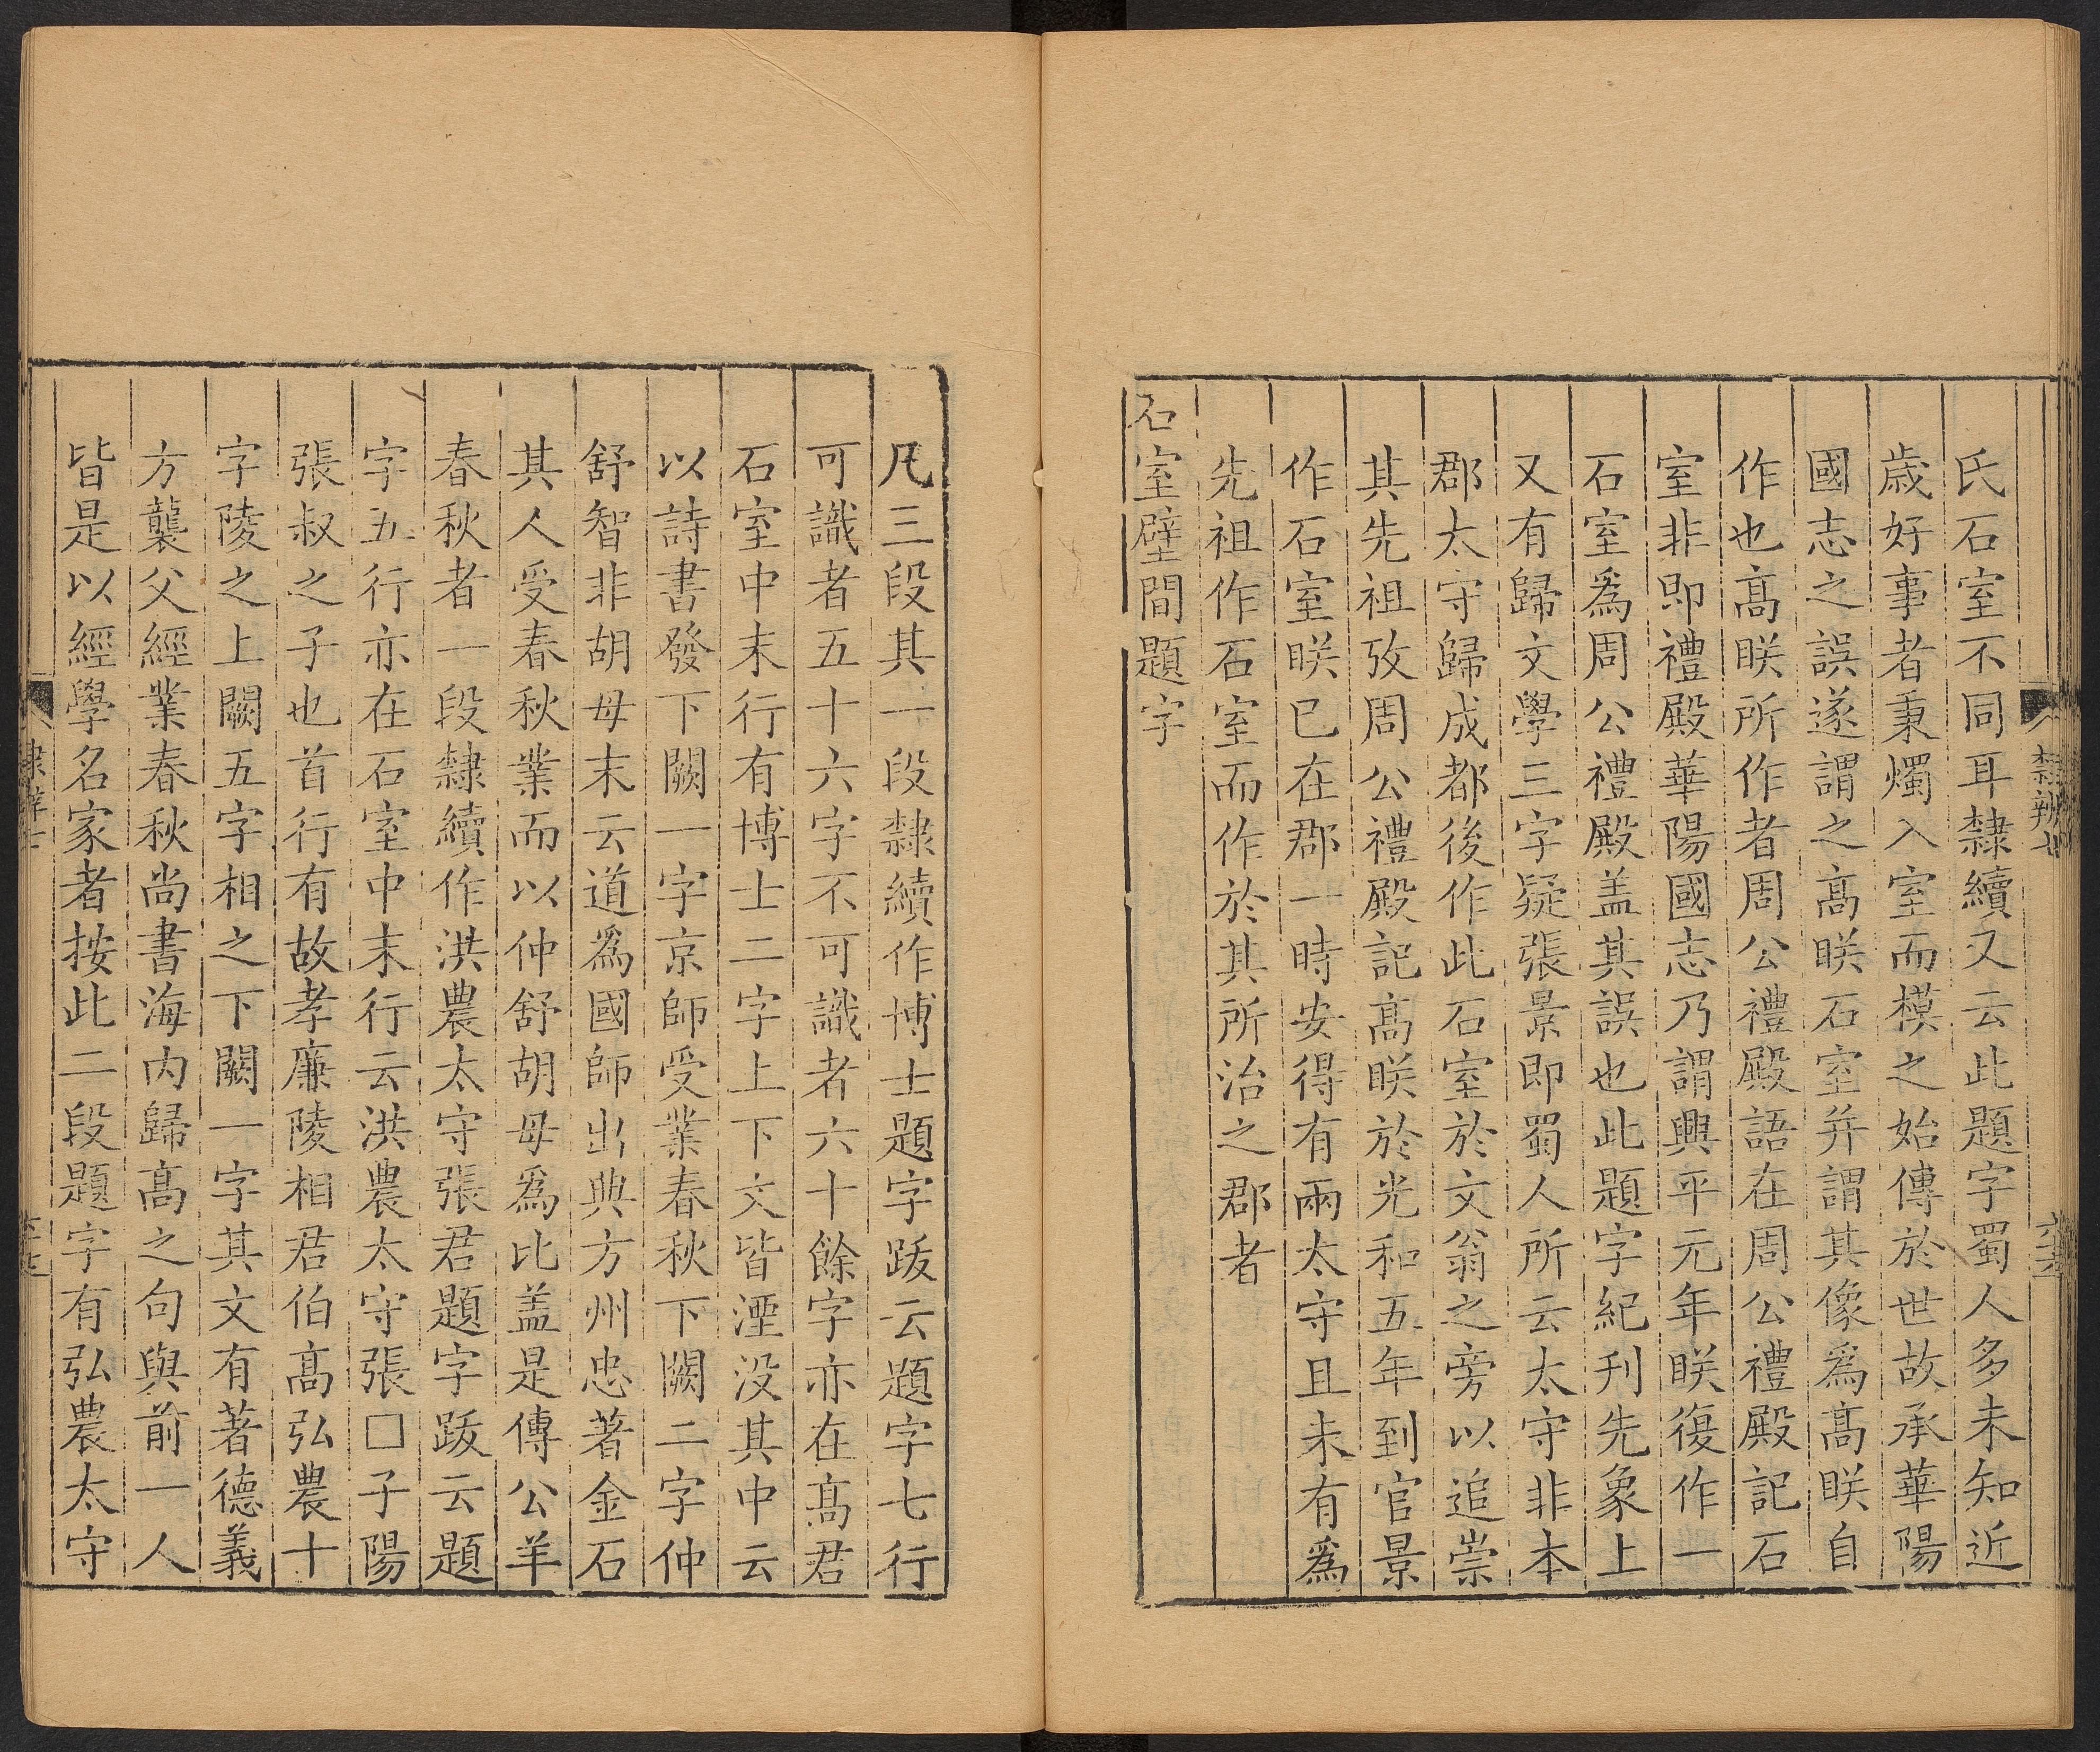 氏石室不同耳隸續又云此題字蜀人多未知近
歲好事者秉燭入室而模之始傳於世故承華陽
國志之誤遂謂之髙眹石室并謂其像爲髙眹自
作也髙眹所作者周公禮殿語在周公禮殿記石
室非即禮殿華陽國志乃謂興平元年眹復作一
石室爲周公禮殿盖其誤也此題字紀刋先象上
又有歸文學三字疑張景即蜀人所云太守非本
郡太守歸成都後作此石室於文翁之旁以追崇
其先祖攷周公禮殿記髙眹於光和五年到官景
作石室眹已在郡一時安得有兩太守且未有爲
先祖作石室而作於其所治之郡者
石室壁間題字
凡三段其一段隸續作博士題字跋云題字七行
可識者五十六字不可識者六十餘字亦在髙君
石室中末行有博士二字上下文皆湮没其中云
以詩書發下闕一字京師受業春秋下闕二字仲
舒智非胡毋末云道爲國師出典方州忠著金石
其人受春秋業而以仲舒胡毋爲比盖是傳公羊
春秋者一段隸續作洪農太守張君題字跋云題
字五行亦在石室中末行云洪農太守張□子陽
張叔之子也首行有故孝廉陵相君伯髙弘農十
字陵之上闕五字相之下闕一字其文有著德義
方襲父經業春秋尚書海内歸髙之句與前一人
皆是以經學名家者按此二段題字有弘農太守